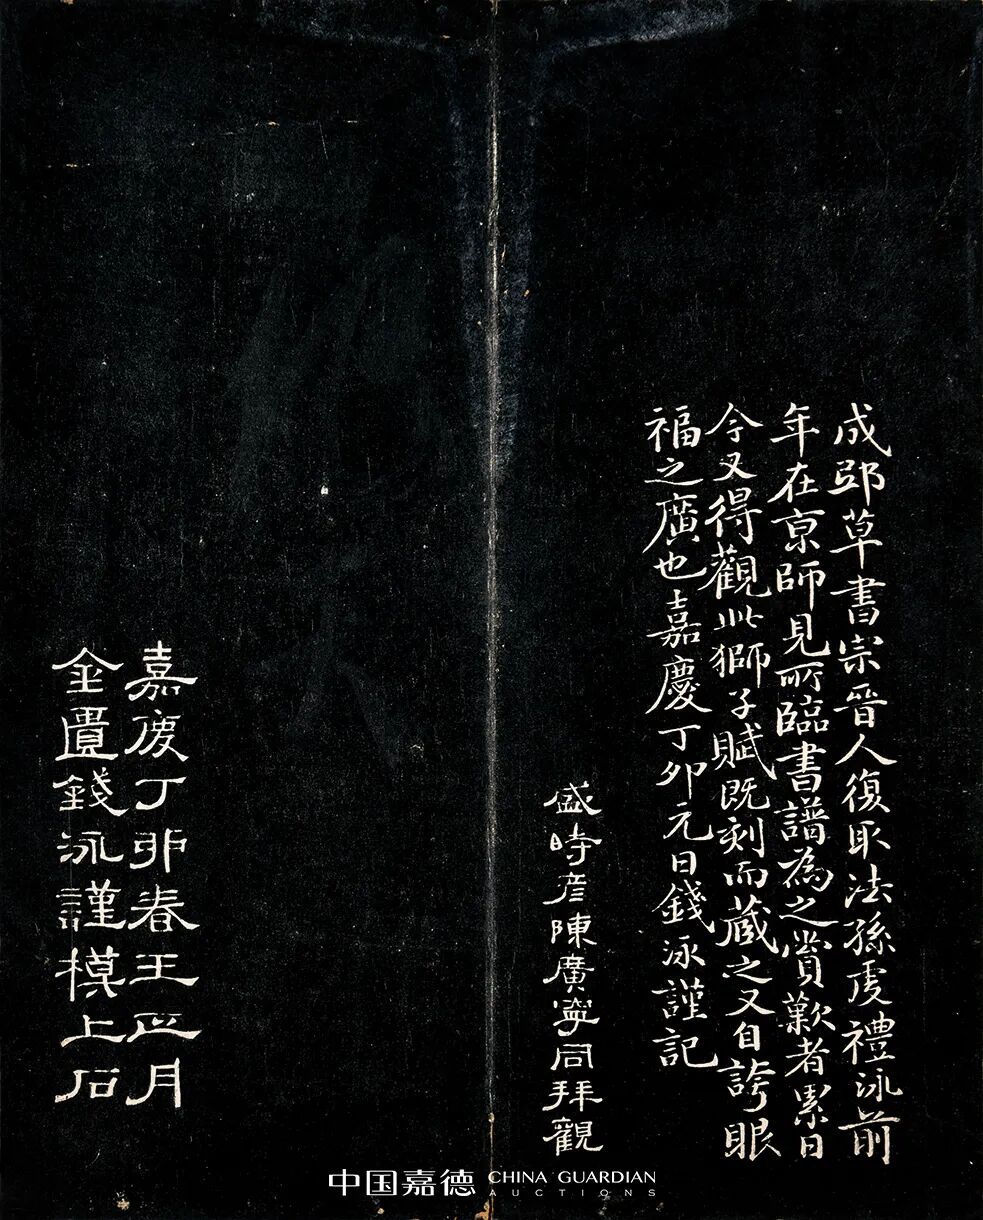 成邸草書宗晉人復取法孫虔禮泳前
年在京師見所臨書譜為之賞歎者累日
今又得觀此獅子賦既刻而藏之又自誇眼
福之廣也嘉慶丁卯元日錢泳謹記
盛時彥陳廣寧同拜觀
嘉慶丁卯春王正月
金匱錢泳謹模上石
中国嘉德 CHINA GUARDIAN
AUCTIONS